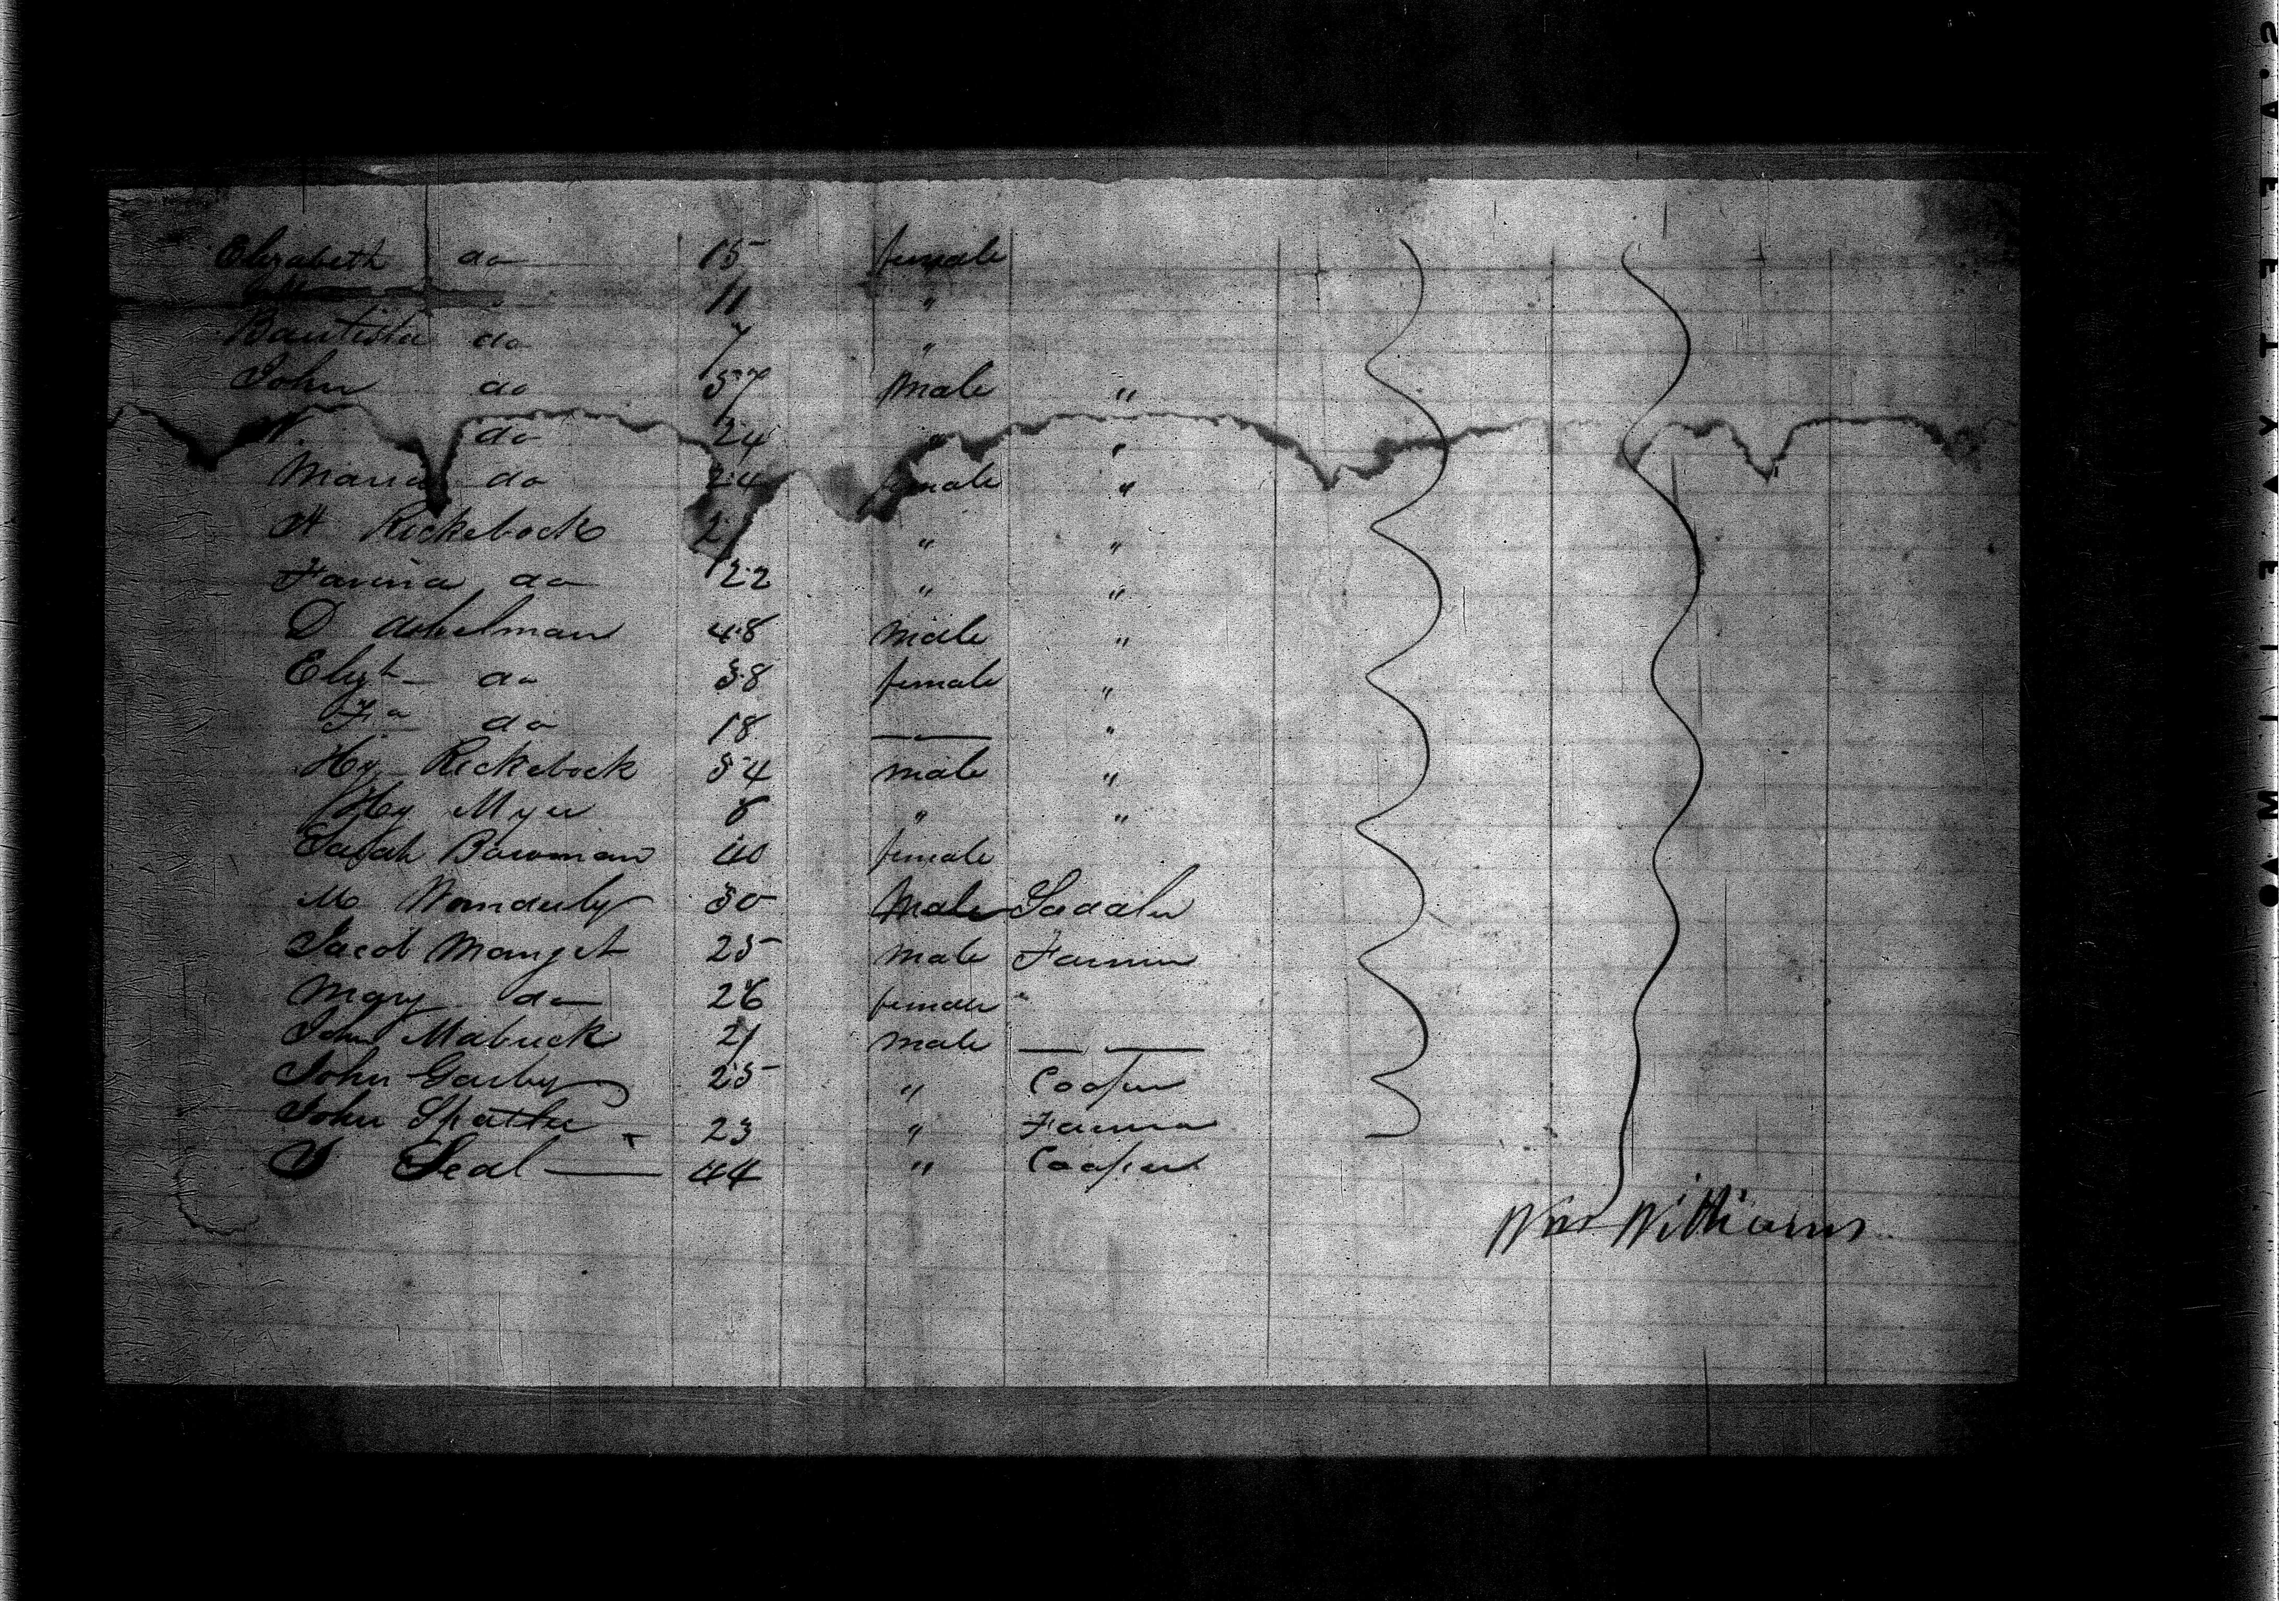 Elizabeth do 15 female
11 "
Bautista do 7 "
John do 57 Male "
do 24 " "
Maria do 24 female "
H Rickebock 21 " "
Farina do 22 " "
D Ackelman 48 male "
Elizt do 38 female "
Fa do 18 — "
Hy Rickebock 54 male "
Hy Myer 8 " "
Sarah Bowman 40 female
M Wanderly 30 Male Saddler
Jacob Manget 25 male Farmer
Mary do 26 female "
John Mabuck 21 male — —
John Garby 25 " Cooper
John Spatter 23 " Farmer
J Seal — 44 " Cooper
Wm Williams